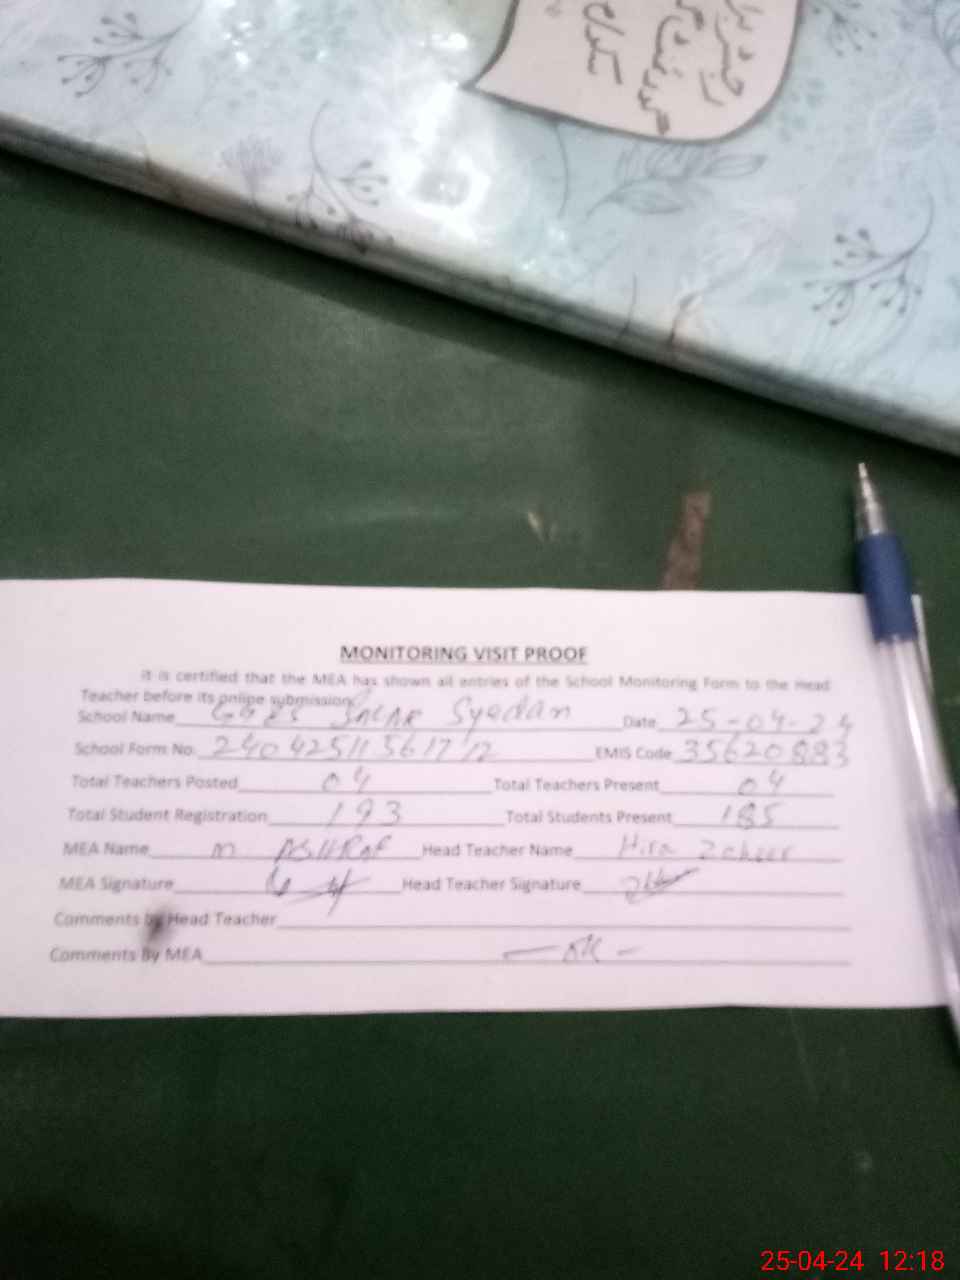 MONITORING VISIT PROOF
It is certified that the MEA has shown all entries of the School Monitoring Form to the Head
Teacher before its online submission.
School Name Syedan Date 25-04-24
School Form No. EMIS Code 35620883
Total Teachers Posted 04 Total Teachers Present 04
Total Student Registration 193 Total Students Present 185
MEA Name M ASHRAF Head Teacher Name Hira Zaheer
MEA Signature Head Teacher Signature
Comments by Head Teacher
Comments By MEA — OK —
25-04-24 12:18